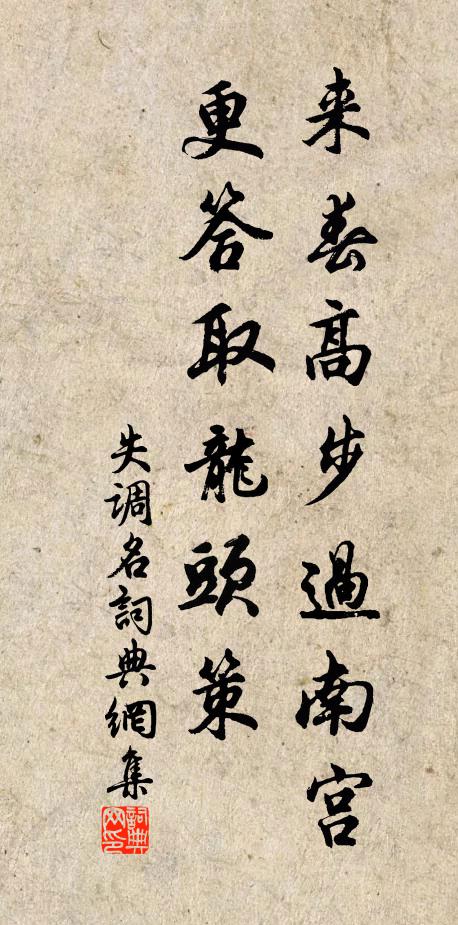 来春高步過南宫
更答取龍頭策
失調名詞典網集
詞典网印